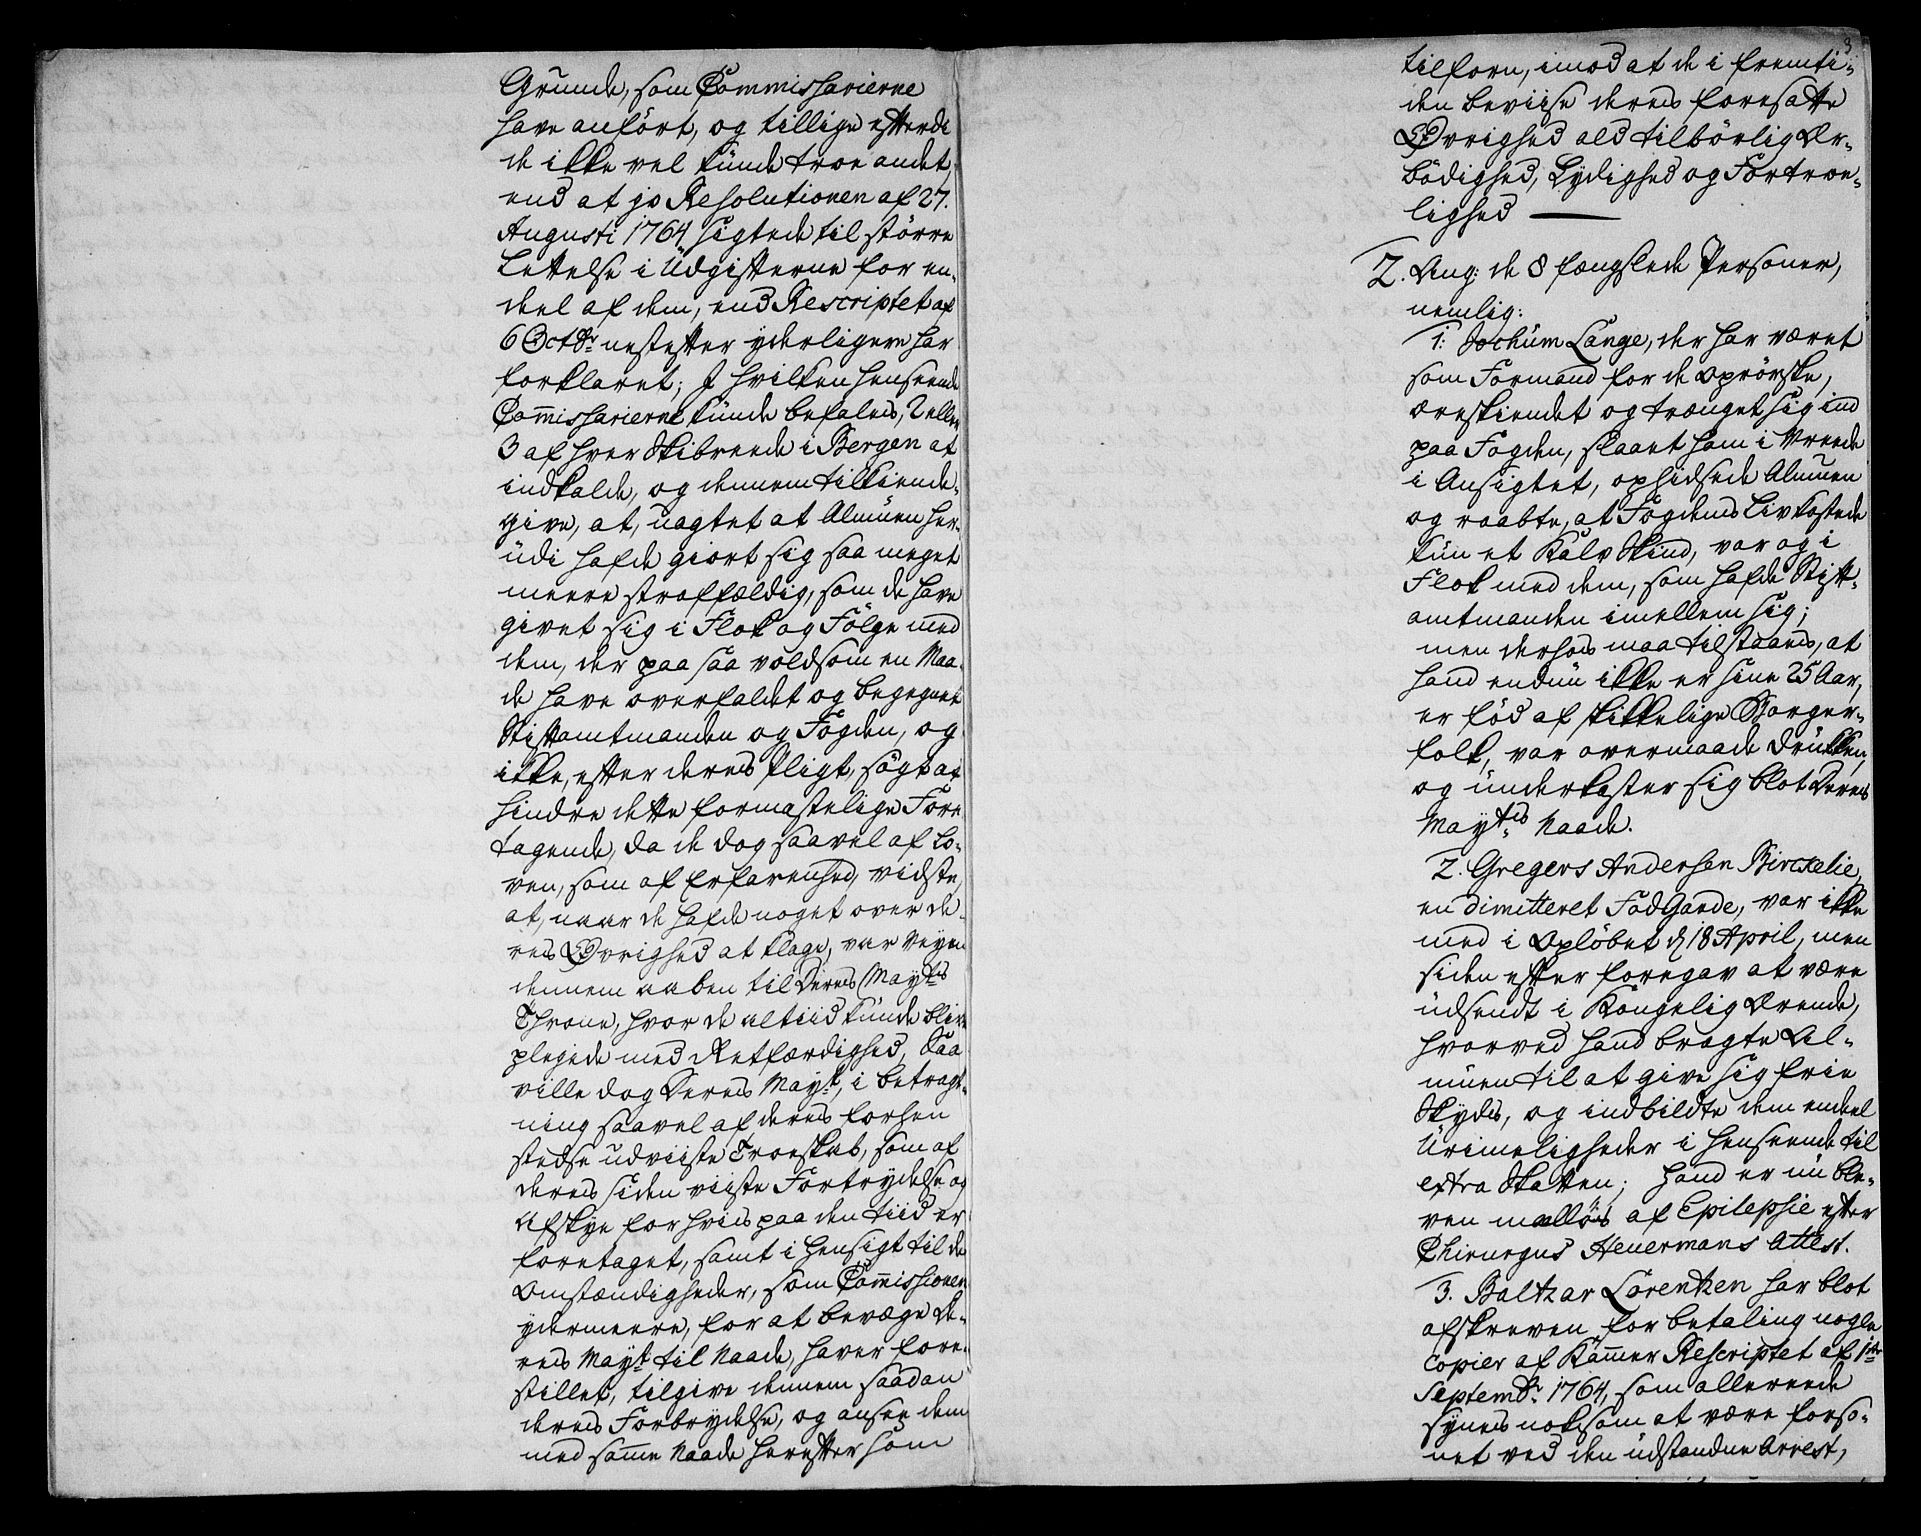 Grunde, som Commissarierne
have anført, og tillige efterdi
de ikke vel kunde troe andet,
end at jo Resolutionen af 27.
Augusti 1764 sigtede til större
Lettelse i Udgifterne for en-
deel af dem, end Rescriptet af
6 Octbr. nestefter yderligere har
forklaret; I hvilken henseende
Commissarierne kunde befales, 2 eller
3 af hver Skibreede i Bergen at
indkalde, og dennem tilkiende-
give, at, uagtet at Almuen her-
udi hafde giort sig saa meget
meere straffældig, som de have
givet sig i Flok og Følge med
dem, der paa saa voldsom en Maa-
de have overfaldet og begegnet
Stiftamtmanden og Fogden, og
ikke, efter deres Pligt, søgt at
hindre dette formastelige Fore-
tagende, da de dog saavel af Lo-
ven, som af Erfarenhed, vidste,
at, naar de hafde noget over de-
res Øvrighed at klage, var Veyen
dennem aaben til Deres Mayts
Throne, hvor de altiid kunde blive
plejede med Retfærdighed, Saa
ville dog Deres Mayt., i betragt-
ning saavel af deres forhen
stedse udviiste Troeskab, som af
deres siden viiste Fortrydelse og
Afskye for hvis paa den tiid er
foretaget, samt i hensigt til de
Omstændigheder, som Commissionen
ydermeere, for at bevæge De-
res Mayt til Naade, haver fore-
stillet, tilgive dennem saadan
deres Forbrydelse, og ansee dem
med samme Naade herefter som
3
tilforn, imod at de i fremti-
den beviise deres foresatte
Øvrighed ald tilbörlig Ær-
bödighed, Lydighed og Fortroe-
lighed —
2. Ang: de 8 fængslede Personer,
nemlig:
1: Jochum Lange, der har været
som Formand for de oprörske,
æreskiendet og trænget sig ind
paa Fogden, slaaet ham i Vreede
i Ansigtet, ophidsede Almuen
og raabte, at Fogdens Liv kostede
kun et Kalv Skind, var og i
Flok med dem, som hafde Stift-
amtmanden imellem sig;
men derhos maa tilstaaes, at
hand endnu ikke er sine 25 Aar,
er föd af skikkelige Borger-
folk, var overmaade drukken,
og underkaster sig blot Deres
Mayts Naade.
2. Gregers Andersen Birckelie,
en dimitteret FodGarde, var ikke
med i Oplöbet d 18 April, men
siden efter foregav at være
udsendt i Kongelig Ærende,
hvorved hand bragte Al-
muen til at give sig frie
Skyds, og indbildte dem endeel
Urimeligheder i henseende til
extra Skatten; hand er nu ble-
ven malløs af Epilepsie efter
Chirurgus Heuermans Attest.
3. Baltzar Lorentzen har blot
afskreven for betaling nogle
Copier af Kammer Rescriptet af 1ste
Septembr. 1764, som allereede
synes noksom at være forso-
net ved den udstandne Arrest,